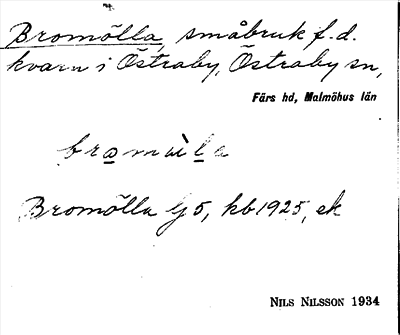 Bromölla, småbruk f.d.
kvarn i Östraby, Östraby sn,
Färs hd, Malmöhus län
Bromölla 5, kb 1925, ek
NILS NILSSON 1934